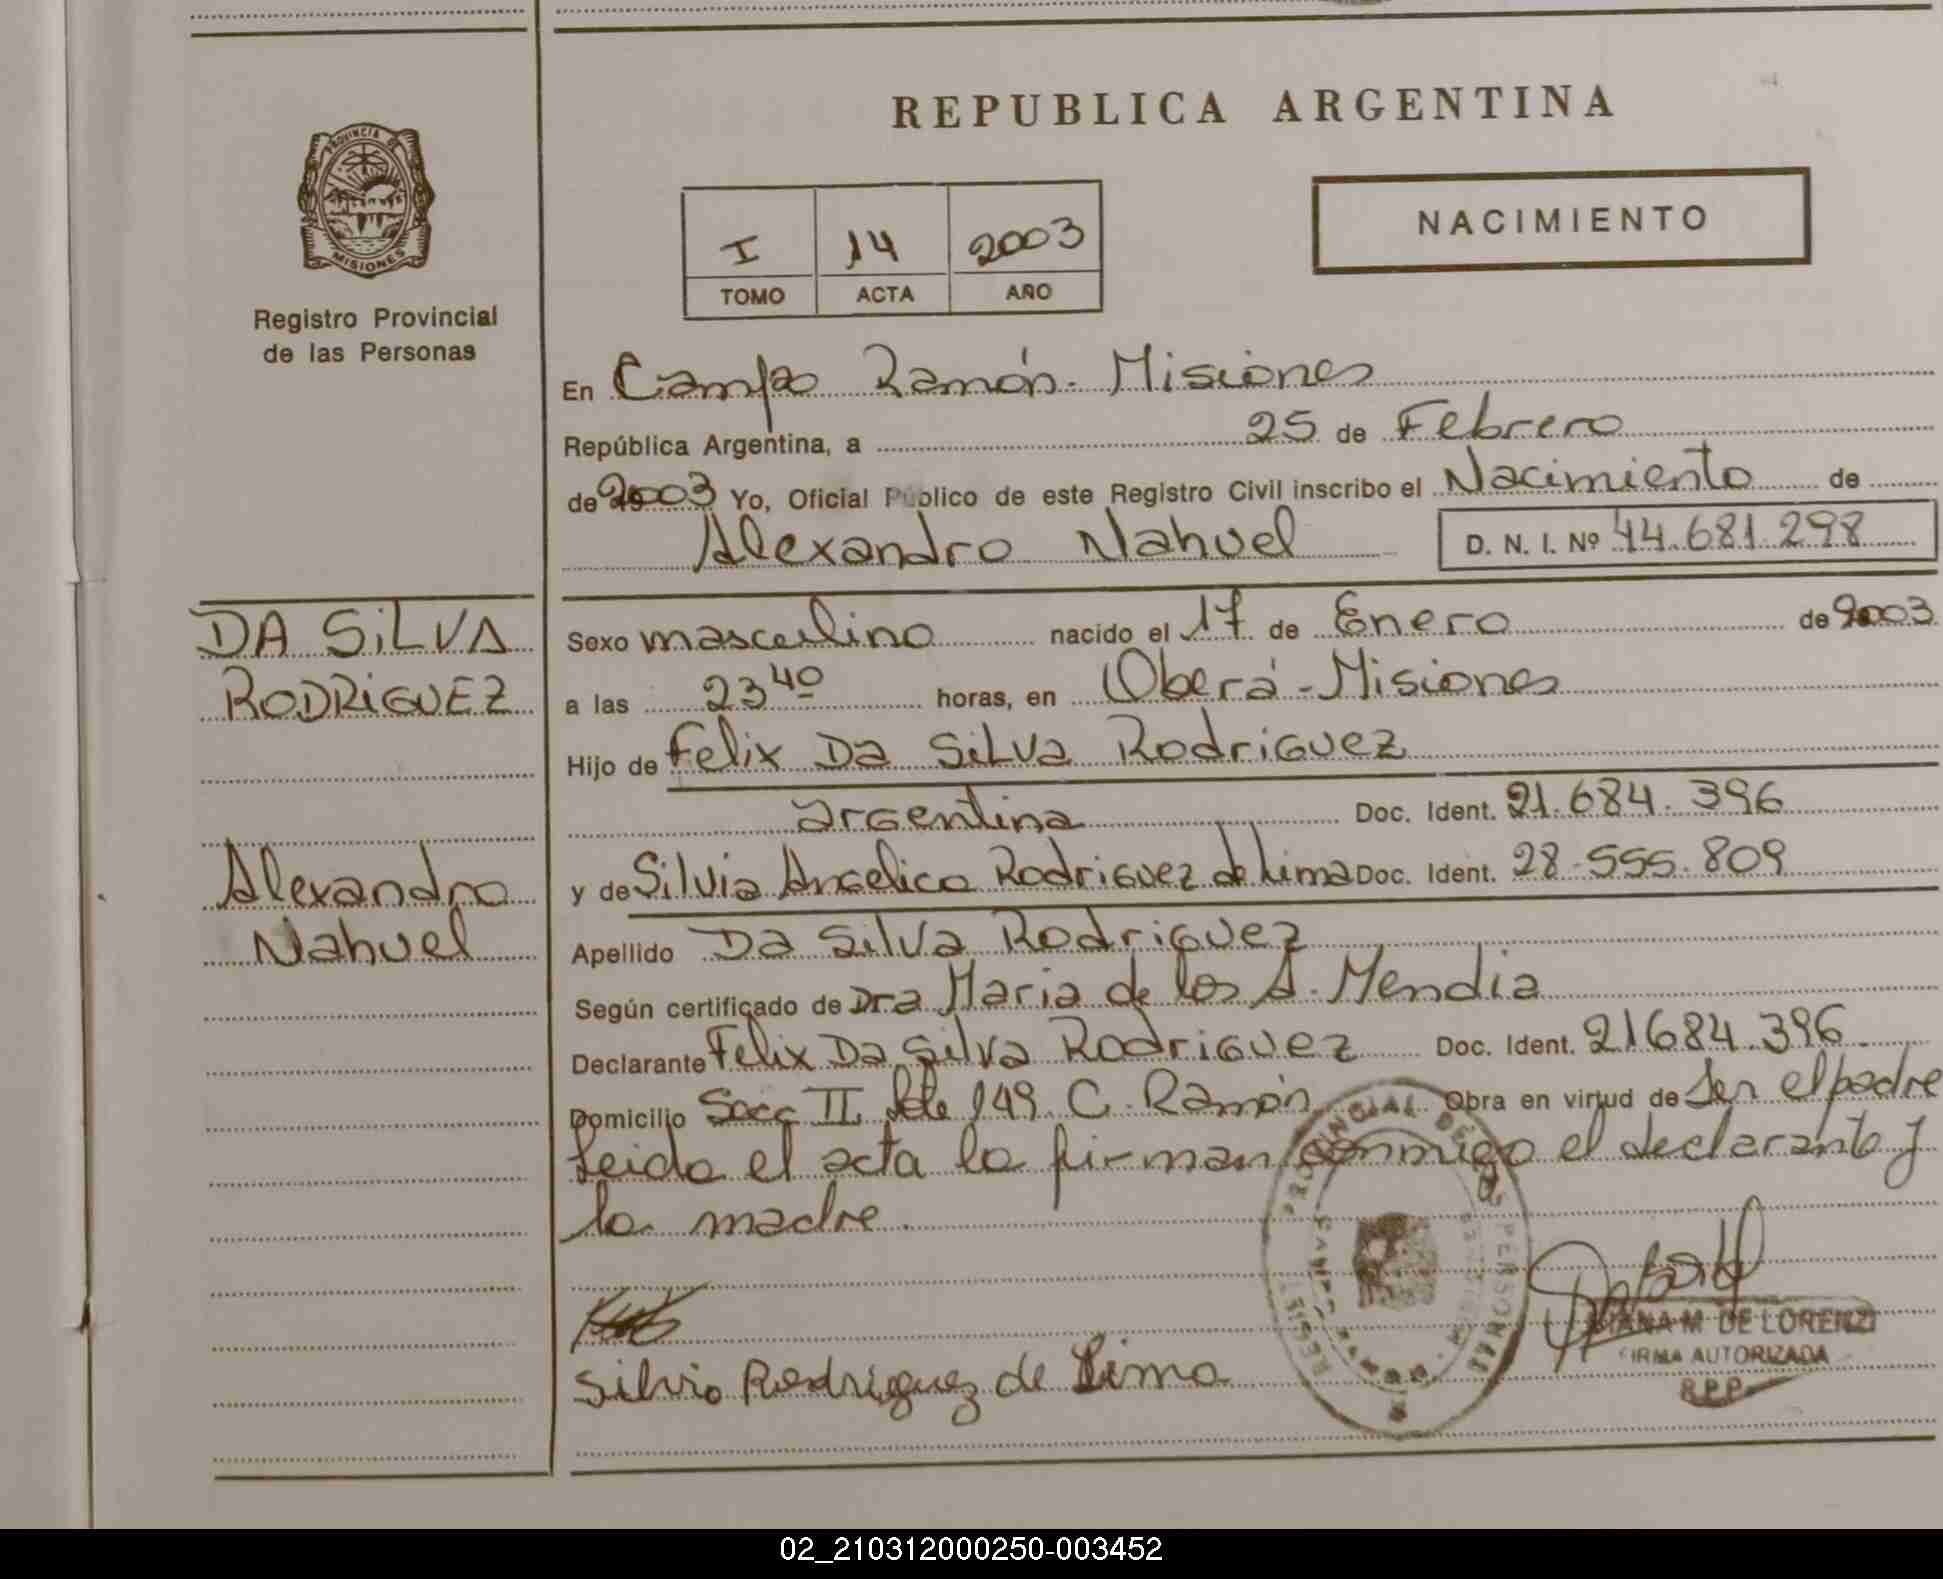 PROVINCIA DE
MISIONES
Registro Provincial
de las Personas
REPUBLICA ARGENTINA
I 14 2003
TOMO ACTA AÑO
NACIMIENTO
En Campo Ramón - Misiones
República Argentina, a 25 de Febrero
de 2003 Yo, Oficial Público de este Registro Civil inscribo el Nacimiento de
Alexandro Nahuel D. N. I. Nº 44.681.298
DA SiLVA
RODRiGUEZ
Alexandro
Nahuel
Sexo masculino nacido el 17 de Enero de 2003
a las 23 40 horas, en Oberá - Misiones
Hijo de Felix Da Silva Rodriguez
argentina Doc. Ident. 21.684.396
y de Silvia Angelica Rodriguez de Lima Doc. Ident. 28.555.809
Apellido Da Silva Rodriguez
Según certificado de Dra Maria de los A. Mendia
Declarante Felix Da Silva Rodriguez Doc. Ident. 21684.396
Domicilio Secc II Lote 149 C. Ramón Obra en virtud de Ser el padre
Leida el acta la firman conmigo el declarante y
la madre.
Silvia Rodriguez de Lima
DIANA M. DE LORENZI
FIRMA AUTORIZADA
R.P.P.
02_210312000250-003452